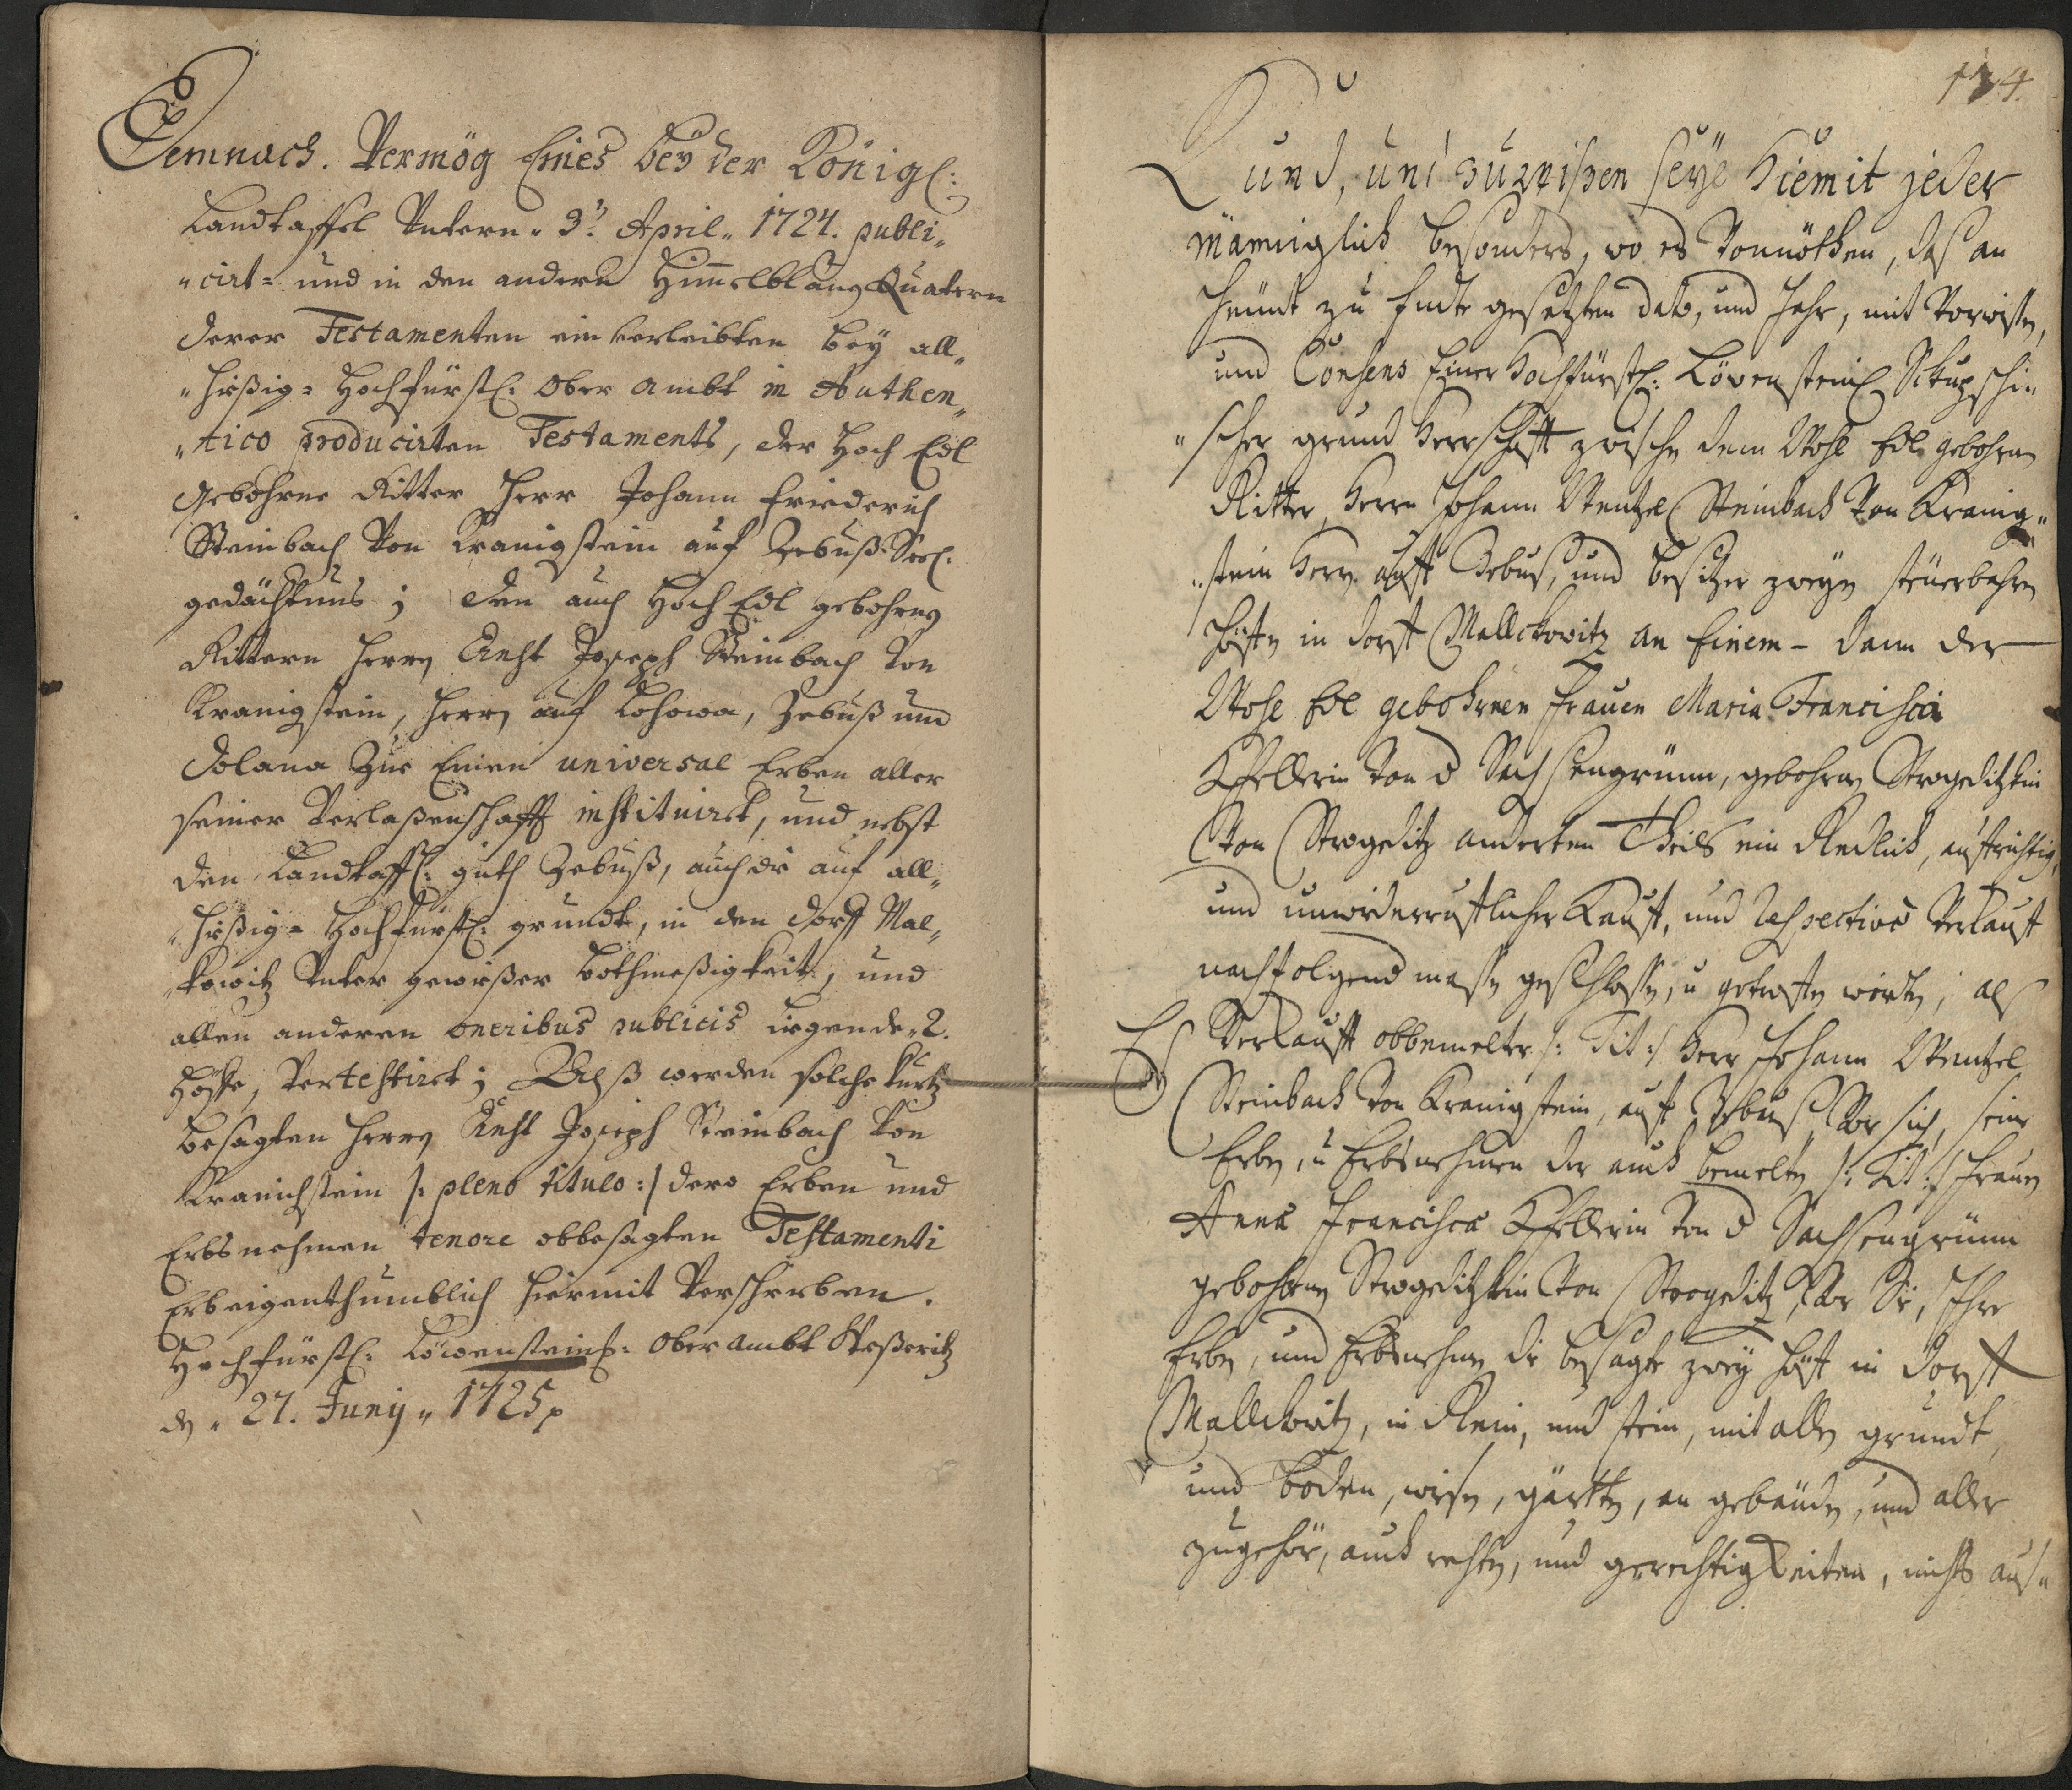 Demnach. Vermög Eines bey der Königl:
Landtaffel Untern „ 3t April „ 1724. publi„
„cirt= und in den andern Himmelblauen Quatern
derer Testamenten ein verleibten bey all„
„hießig= Hochfürstl: Ober Ambt in Authen„
„tico producirten Testaments, der Hoch Edl
Gebohrne Ritter Herr Johann Friederich
Steinbach von Kranigstein auf Zebuß Seel:
gedächtnus ; den auch Hoch Edl gebohrnen
Rittern Herrn Joseph Steinbach von
Kranigstein, Herrn auf Lohowa, Zebuß und
Dolana zur Einen universal Erben aller
seiner Verlaßenschafft instituirt, und nebst
den Landtaffl: guth Zebuß, auch die auf all„
„hießig= Hochfürstl: grundt, in den dorff Mal„
„kowitz Unter gewißer Bothmeßigkeit, und
allen anderen oneribus publicis liegende „2.
Höffe, Vertestirt ; Alß werden solche kurtz
besagten Herrn Joseph Steinbach von
Kranichstein /: pleno titulo :/ dero Erben und
Erbsnehmen tenore obbesagten Testamenti
Erbeigenthumblich hiermit Verschrieben.
Hochfürstl: Löwensteinl: Ober Ambt
den „ 27. Juny „ 1725
174.
Kund, und zu wißen seye hiemit jeder
männiglich besonders, wo es Vonnöthen, daß an
heundt zu Endte gesetzten dato, und Jahr, mit Vorwissen,
und Consens Einer Hochfürstl: Lövensteinl
„scher grund Herrschafft zwischen dem Wohl Edl gebohrnen
Ritter, Herrn Johann Wentzel Steinbach Von Kranig„
„stein Herrn auff Zebuß, und besitzer zweyen steuerbahren
Höffen in dorff Mallckowitz an Einem – dann der
Wohl Edl gebohrnen Frauen Maria Francisca
Von Sachsengrünn, gebohrnen
Von anderten Theils ein Redlich, auffrichtig,
und unwiderrufflicher Kauff, und Respective Verkauff
nachfolgend massen geschlossen, u getroffen worden, als
Es Verkaufft obbemelter /: Tit :/ Herr Johann Wentzel
Steinbach Von Kranigstein, auff Zebuß, Vor sich, seine
Erben, u Erbsnehmen der auch bemelten /: Tit :/ Frauen
Anna Francisca Von Sachsengrünn
gebohrnen Von Vor Sie, Ihre
Erben, und Erbsnehmen die besagte zwey Höff in Dorff
Mallckowitz, in Rein, und stein, mit allen grundt,
und boden, wiesen, gärtten, an gebäuden, und aller
zugehör, auch rechten, und gerechtigkeiten, nichts aus„